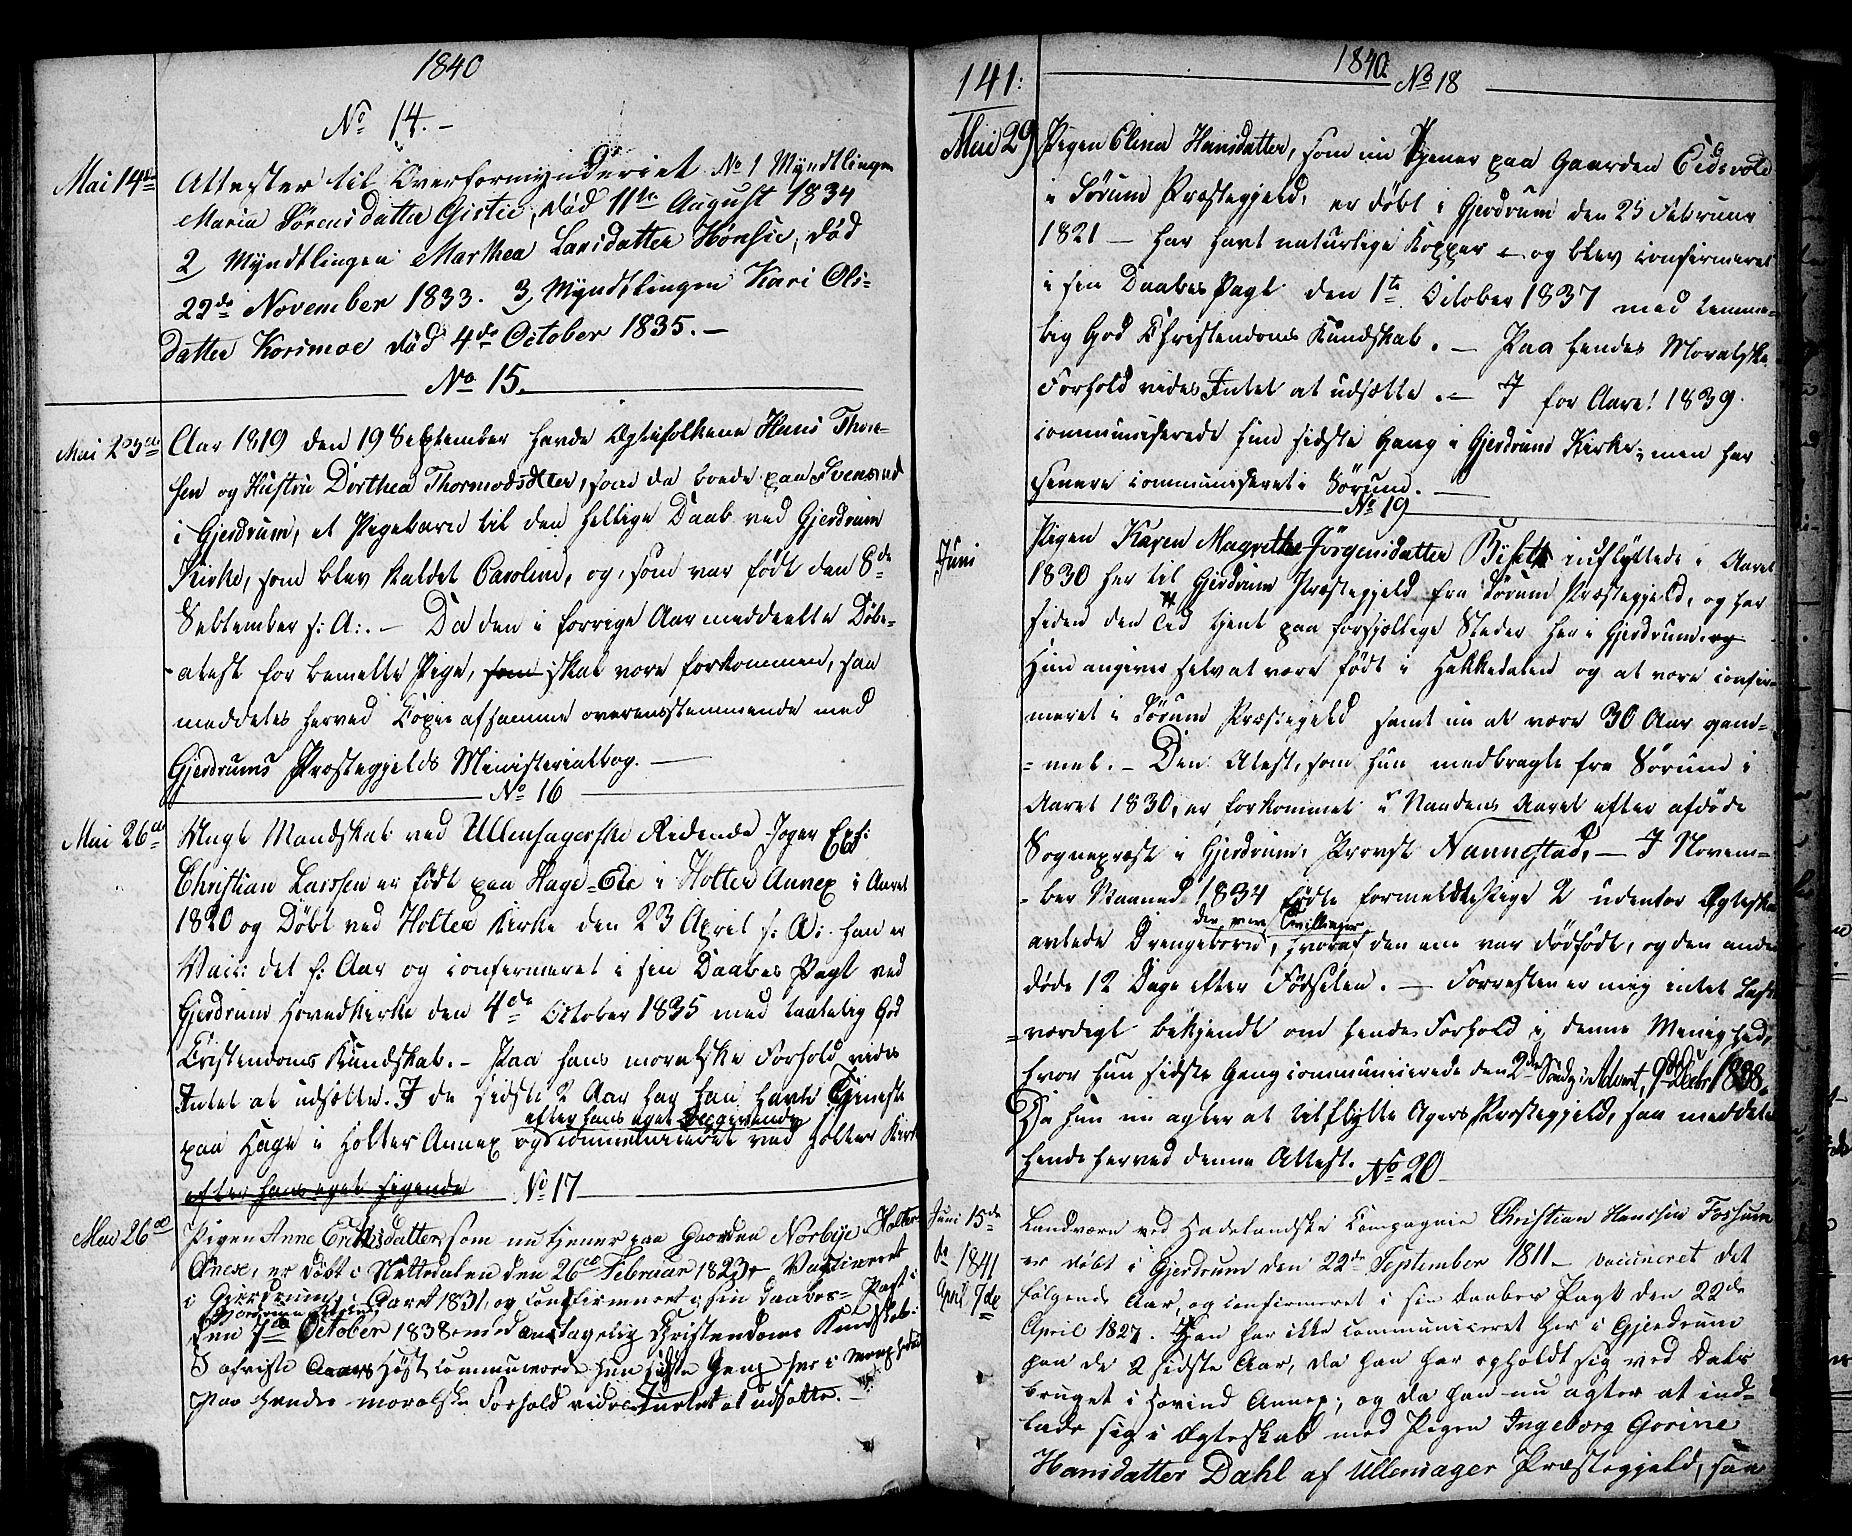 1840
No 14.-
Mai 14de
Attester til Overformynderiet No 1 Myndtlingen
Maria Sørensdatter Gistie, død 11te August 1834
2, Myndtlingen Marthea Larsdatter Hønsie, død
22de November 1833. 3, Myndtlingen Kari Ols-
datter Korsmoe død 4de October 1835.-
No 15.
Mai 23de
Aar 1819 den 19 September havde Ægtefolkene Hans Thor-
sen og Hustru Dorthea Thormodsdtter, som da boede paa
i Gjerdrum, et Pigebarn til den hellige Daab ved Gjerdrum
Kirke, som blev kaldet Caroline, og, som var født den 8de
September s: A:. - Da den i forrige Aar meddeelte Døbe-
-atest for bemelte Pige, som skal være forkommen, saa
meddeles herved Copie af samme overensstemmende med
Gjerdrums Præstegjelds Ministerialbog. -
No 16
Mai 26de
Vagt Mandskab ved Ullensagerske Ridende Jæger Esk:
Christian Larssen er født paa Hage-Eie i Holter Annex i Aaret
1820 og Døbt ved Holter Kirke den 23 April s: A: han er
Vacc: det s: Aar og confirmeret i sin Daabes Pagt ved
Gjerdrum Hovedkirke den 4de October 1835 med taalelig God
Cristendoms Kundskab. - Paa hans moralske Forhold vides
Intet at udsætte. I de sidste 2 Aar har han havt Tjeneste
efter hans eget Opgivende
paa Hage i Holter Annex og communiceret ved Holter Kirke
efter hans eget sigende
No 17
Mai 26de
Pigen Anne Eriksdatter, som nu tjener paa Gaarden Norbye i Holter
Anex, er døbt i Nittedalen den 26de Februar 1823 - Vaccineret
i Gjerdrum i Aaret 1831, og confirmeret i sin Daabes- Pagt i
Gjerdrum Kirke
den 7de October 1838 med antagelig Christendoms Kundskab.
I afvigte Aars Høst communicerede hun sidste Gang her i Menighed
Paa hendes moralske Forhold vides Intet at udsætte. -
141.
1840.
No 18
Mai 29
Pigen Elina Hansdatter, som nu tjener paa Gaarden Eidsvold
i Sørum Præstegjeld, er døbt i Gjerdrum den 25 Februar
1821 - har havt naturlige Kopper - og blev confirmeret
i sin Daabes Pagt den 1te October 1837 med temme-
lig God Christendoms Kundskab. - Paa hendes Moralske
Forhold vides Intet at udsætte. - I for Aaret 1839
communiserede hun sidste Gang i Gjerdrum Kirke; men har
senere communiseret i Sørum. -
No 19
Juni
Pigen Karen Magrethe Jørgensdatter indflyttede i Aaret
1830 her til Gjerdrum Præstegjeld fra Sørum Præstegjeld, og har
siden den Tid tjent paa forskjellige Steder her i Gjerdrum og
Hun angiver selv at være født i Hakkedalen og at være confir-
meret i Sørum Præstegjeld samt nu at være 30 Aar gam-
-mel. - Den Atest, som hun medbragte fra Sørum i
Aaret 1830, er forkommet i Naadens Aaret efter afdøde
Sognepræst i Gjerdrum, Provst Nannestad, - I Novem-
-ber Maaned 1834 fødte formeldte Pige 2 udenfor Ægteskab
der var Tvillinger
avlede Drengebørn, hvoraf den ene var dødfødt, og den anden
døde 12 Dage efter Fødselen. - Forresten er mig intet Last-
-værdigt bekjendt om hendes Forhold i denne Menighed,
hvor hun sidste Gang communicerede den 2de Søndg i Advent, 9de Decbr 1838.
Da hun nu agter at tilflytte Agers Præstegjeld, saa meddeles
hende herved denne Attest.
No 20
Juni 15de
do 1841
April 7de
Landværn ved Hadelandske Compagnie Christian Hanssen Fossum
er døbt i Gjerdrum den 22de September 1811 - vaccineret det
følgende Aar, og confirmeret i sin Daabes Pagt den 22de
April 1827. Han har ikke communiceret her i Gjerdrum
paa de 2 sidste Aar, da han har opholdt sig ved Dals
bruget i Hovind Annex; og da han nu agter at ind-
lade sig i Ægteskab med Pigen Ingeborg Gorine
Hansdatter Dahl af Ullensager Præstegjeld, saa